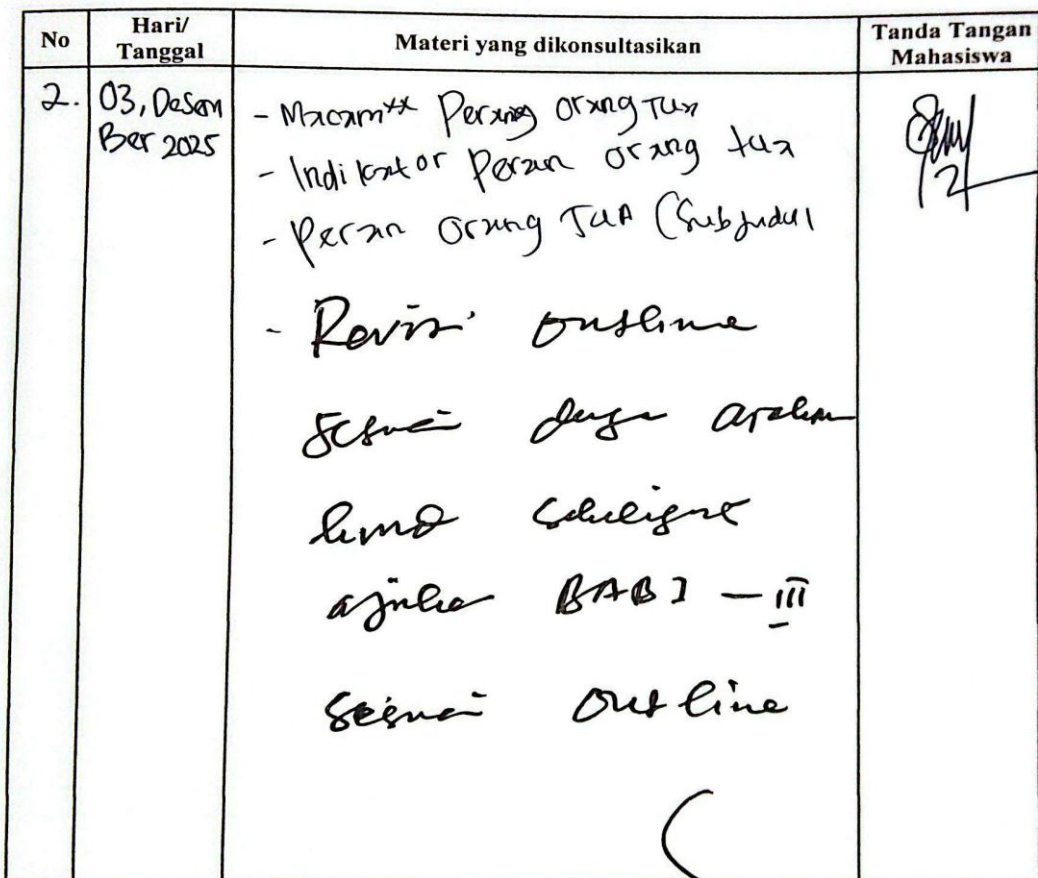 No
Hari/
Tanggal
Materi yang dikonsultasikan
Tanda Tangan
Mahasiswa
2.
03, Desem
Ber 2025
- Macam** Peran Orang Tua
- Indikator Peran orang tua
- Peran Orang TUA (Subjudul
- Revisi outline
sesuai dengan arahan
ajukan BAB I – III
sesuai outline